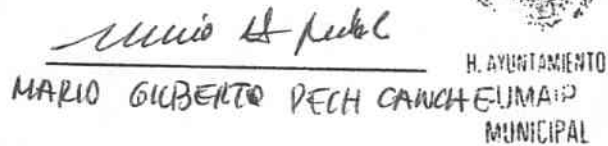 H. AYUNTAMIENTO
MARIO GILBERTO PECH CANCHE
UMAIP
MUNICIPAL